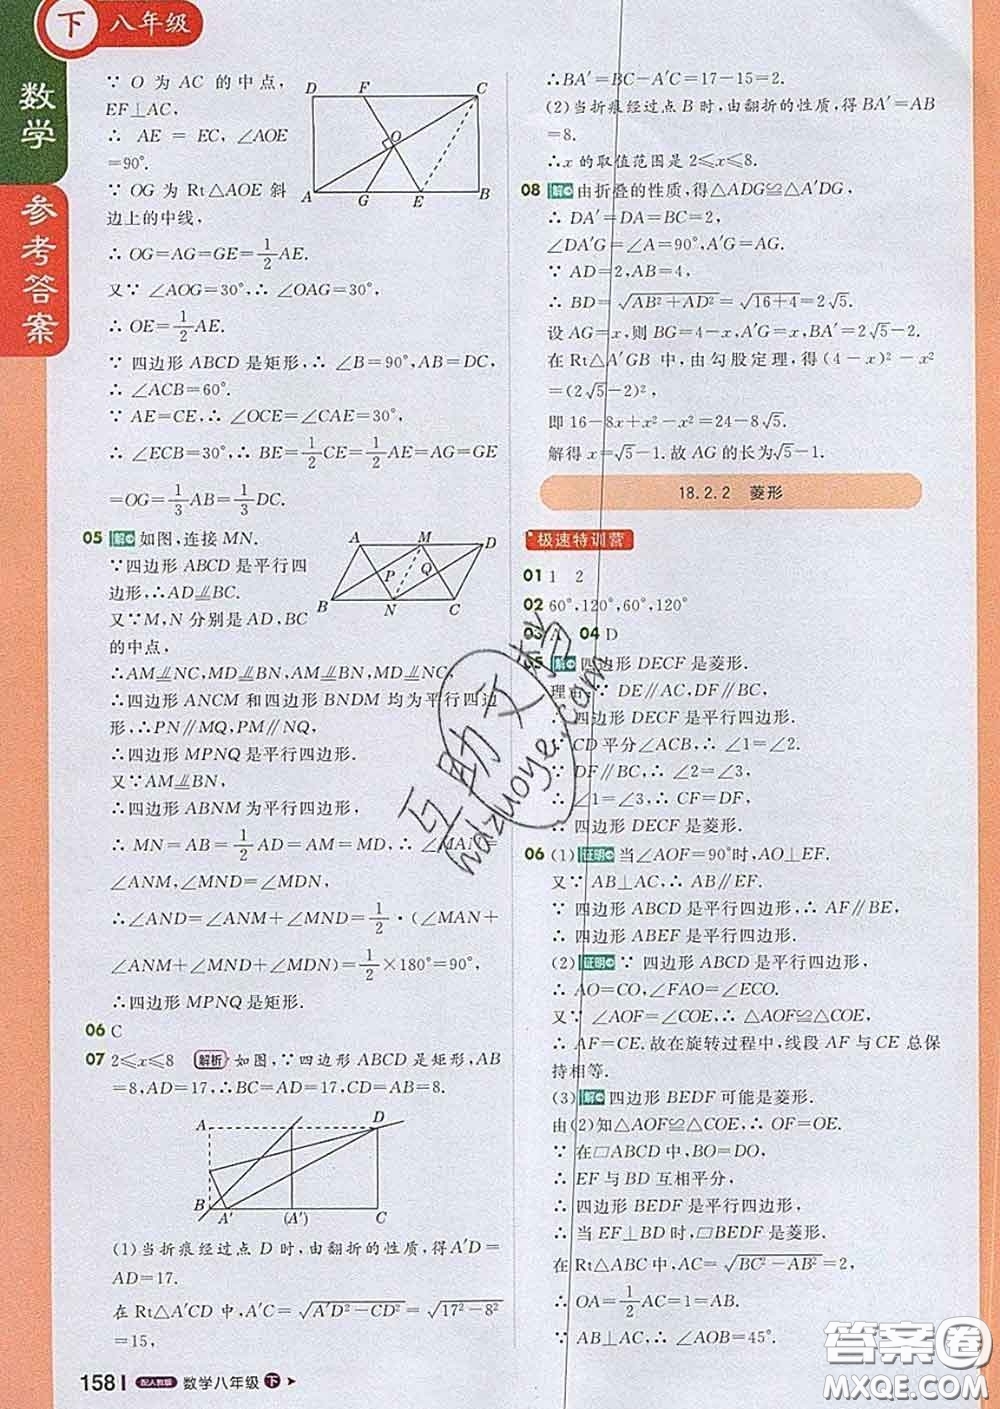 下 八年级
数学
参考答案
∵ O 为 AC 的中点,
EF⊥AC,
∴ AE = EC, ∠AOE
=90°.
∵ OG 为 Rt△AOE 斜
边上的中线,
∴ OG=AG=GE=1/2AE.
又∵ ∠AOG=30°,∴ ∠OAG=30°.
∴ OE=1/2AE.
∵ 四边形 ABCD 是矩形,∴ ∠B=90°,AB=DC,
∴ ∠ACB=60°.
∵ AE=CE,∴ ∠OCE=∠CAE=30°,
∴ ∠ECB=30°,∴ BE=1/2CE=1/2AE=AG=GE
=OG=1/3AB=1/3DC.
D F C
O
A G E B
05 解 如图,连接 MN.
∵四边形 ABCD 是平行四
边形,∴AD∥=BC.
又∵M,N 分别是 AD,BC
的中点,
∴AM∥=NC,MD∥=BN,AM∥=BN,MD∥=NC.
∴四边形 ANCM 和四边形 BNDM 均为平行四边
形,∴PN∥MQ,PM∥NQ.
∴四边形 MPNQ 是平行四边形.
又∵AM∥=BN,
∴四边形 ABNM 为平行四边形,
∴ MN=AB=1/2AD=AM=MD,∴ ∠MAN=
∠ANM,∠MND=∠MDN,
∴∠AND=∠ANM+∠MND=1/2·(∠MAN+
∠ANM+∠MND+∠MDN)=1/2×180°=90°,
∴四边形 MPNQ 是矩形.
A M D
P Q
B N C
06 C
07 2≤x≤8 解析 如图,∵四边形 ABCD 是矩形,AB
=8,AD=17,∴BC=AD=17,CD=AB=8.
A D
B A′ (A′) C
(1)当折痕经过点 D 时,由翻折的性质,得 A′D=
AD=17.
在 Rt△A′CD 中,A′C=√(A′D²-CD²)=√(17²-8²)
=15,
158 配人教版 数学八年级 下
∴BA′=BC-A′C=17-15=2.
(2)当折痕经过点 B 时,由翻折的性质,得 BA′=AB
=8.
∴x 的取值范围是 2≤x≤8.
08 解 由折叠的性质,得△ADG≌△A′DG,
∴ DA′=DA=BC=2,
∠DA′G=∠A=90°,A′G=AG.
∵ AD=2,AB=4,
∴ BD=√(AB²+AD²)=√(16+4)=2√5.
设 AG=x,则 BG=4-x,A′G=x,BA′=2√5-2.
在 Rt△A′GB 中,由勾股定理,得(4-x)²-x²
=(2√5-2)²,
即 16-8x+x²-x²=24-8√5.
解得 x=√5-1.故 AG 的长为√5-1.
18.2.2 菱形
极速特训营
01 1 2
02 60°,120°,60°,120°
03 A 04 D
05 解 四边形 DECF 是菱形.
理由:∵ DE∥AC,DF∥BC,
∴四边形 DECF 是平行四边形.
∵CD平分∠ACB,∴ ∠1=∠2.
∵ DF∥BC,∴ ∠2=∠3,
∴∠1=∠3,∴ CF=DF,
∴ 四边形 DECF 是菱形.
06 (1)证明 当∠AOF=90°时,AO⊥EF.
又∵ AB⊥AC,∴ AB∥EF.
∵ 四边形 ABCD 是平行四边形,∴ AF∥BE,
∴ 四边形 ABEF 是平行四边形.
(2)证明 ∵ 四边形 ABCD 是平行四边形,
∴ AO=CO,∠FAO=∠ECO.
又∵ ∠AOF=∠COE,∴ △AOF≌△COE,
∴ AF=CE.故在旋转过程中,线段 AF 与 CE 总保
持相等.
(3)解 四边形 BEDF 可能是菱形.
由(2)知△AOF≌△COE,∴ OF=OE.
∵ 在▱ABCD 中,BO=DO,
∴ EF 与 BD 互相平分,
∴ 四边形 BEDF 是平行四边形,
∴ 当 EF⊥BD 时,▱BEDF 是菱形.
在 Rt△ABC 中,AC=√(BC²-AB²)=2,
∴ OA=1/2AC=1=AB.
∵ AB⊥AC,∴ ∠AOB=45°.
互助文档
hdzuoye.com
答案圈
MXQE.COM